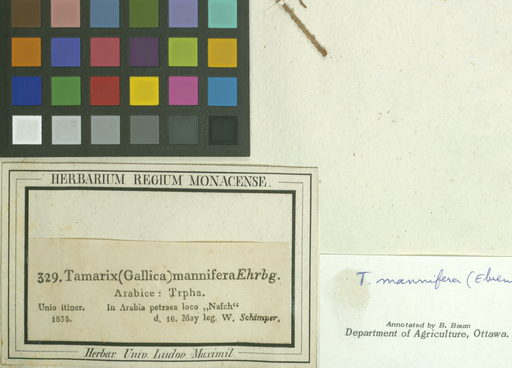 HERBARIUM REGIUM MONACENSE.
329. Tamarix (Gallica) mannifera Ehrbg.
Arabice: Trpha.
Unio itiner. In Arabia petraea loco „Nafch“
1835. d. 16. May leg. W. Schimper.
Herbar. Univ. Ludov. Maximil
T. mannifera (Ehren
Annotated by B. Baum
Department of Agriculture, Ottawa.